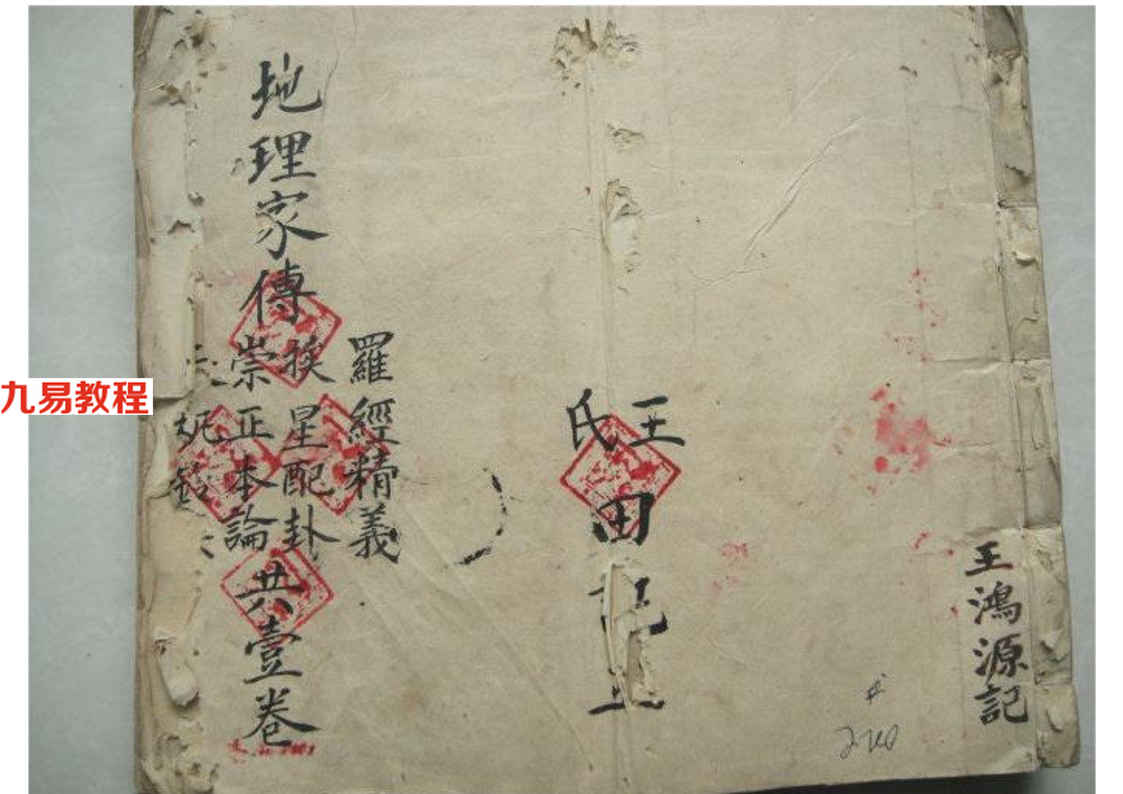 地理家傳
羅經精義
挨星配卦
崇正本論
共壹卷
王氏
田
王鴻源記
九易教程